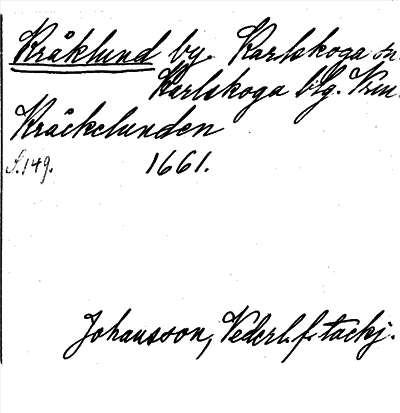 Kråklund by. Karlskoga sn.
Karlskoga blg. Vrm.
Kråckelunden
S.149. 1661.
Johansson, Vederl. f. tackj.